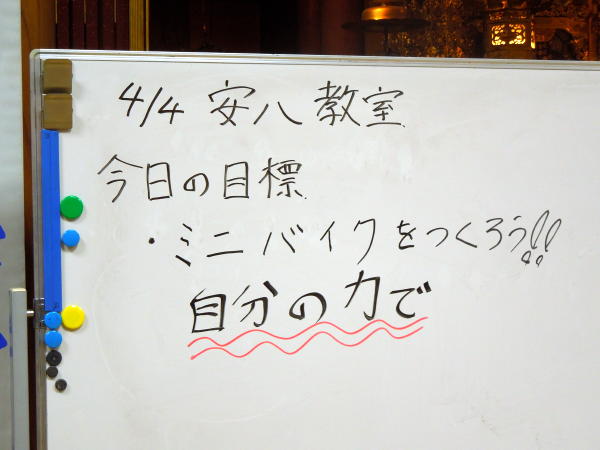 4/4 安八教室
今日の目標
・ミニバイクをつくろう!!
自分の力で